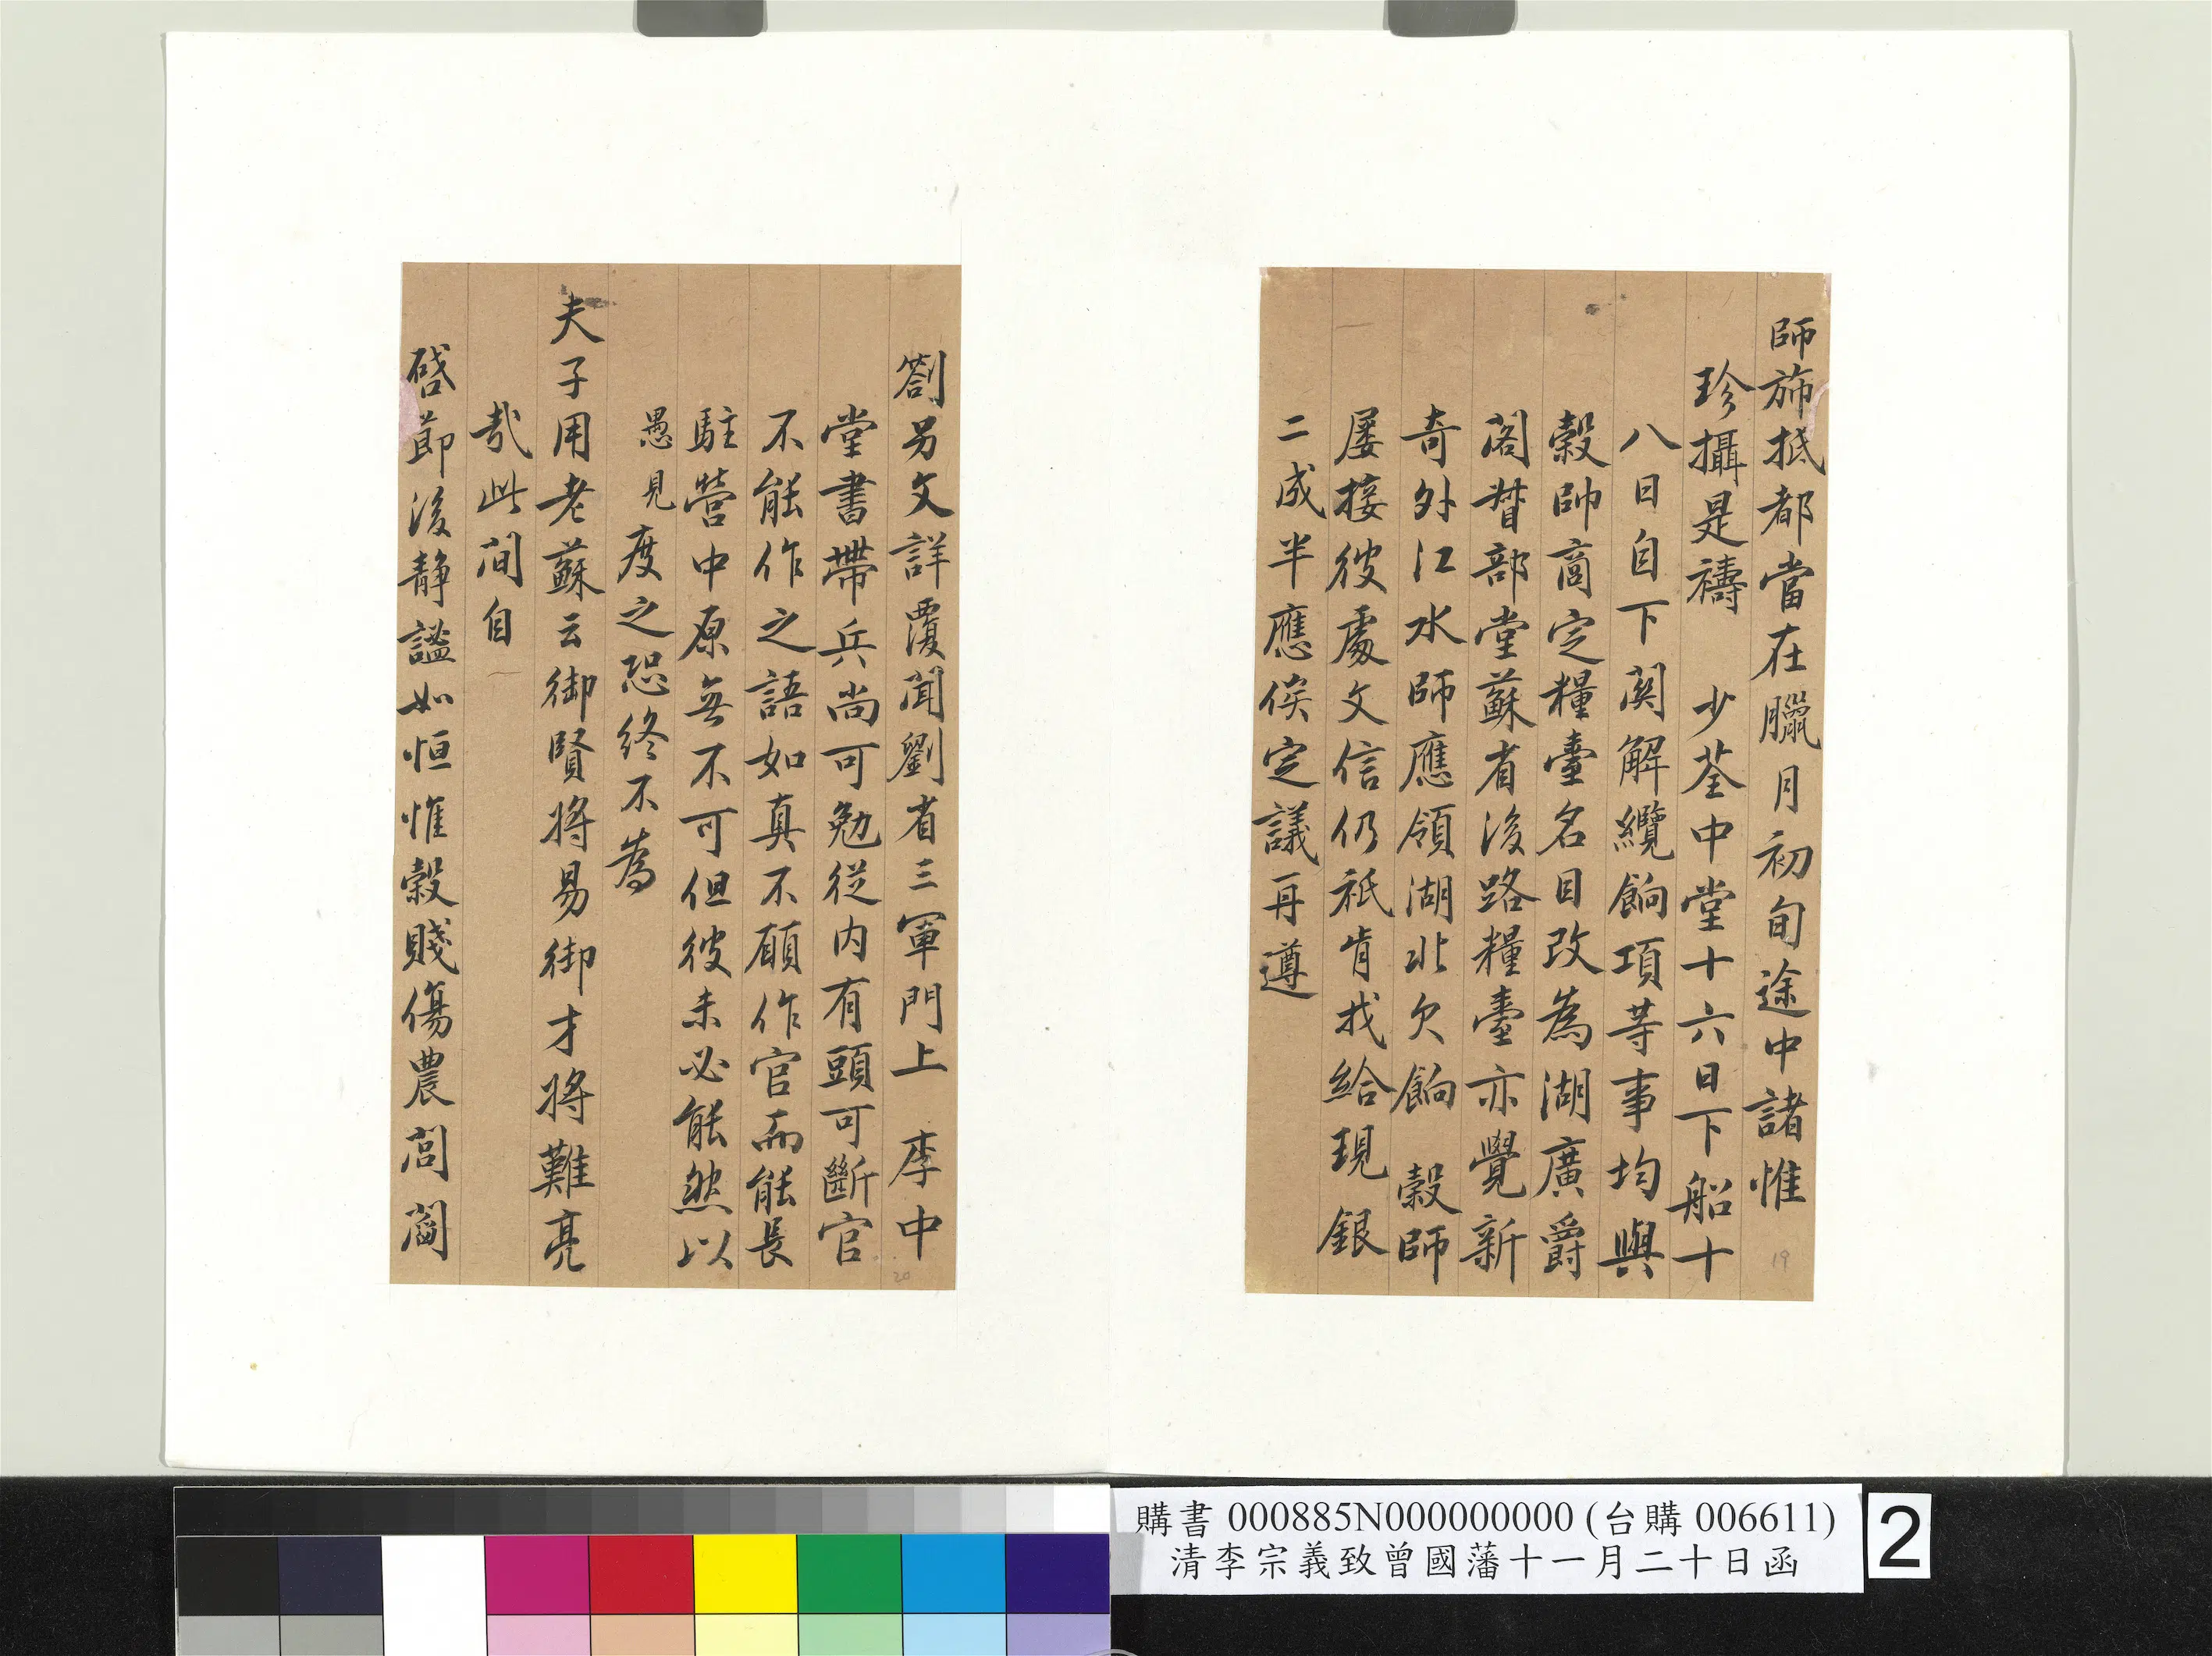 師斾抵都當在臘月初旬途中諸惟
珍攝是禱　少荃中堂十六日下船十
八日自下関解纜餉項等事均與
穀帥商定糧臺名目改為湖廣爵
閣督部堂蘇省後路糧臺亦覺新
奇外江水師應領湖北欠餉　穀帥
屡接彼處文信仍祇肯找給現銀
二成半應俟定議再遵
劄另文詳覆聞劉省三軍門上　李中
堂書帶兵尚可勉從内有頭可斷官
不能作之語如真不願作官而能長
駐營中原無不可但彼未必能然以
愚見度之恐終不為
夫子用老蘇云御賢將易御才將難亮
哉此間自
啓節後静謐如恒惟穀賤傷農閭閻
19
20
購書 000885N000000000 (台購 006611)
清李宗羲致曾國藩十一月二十日函
2